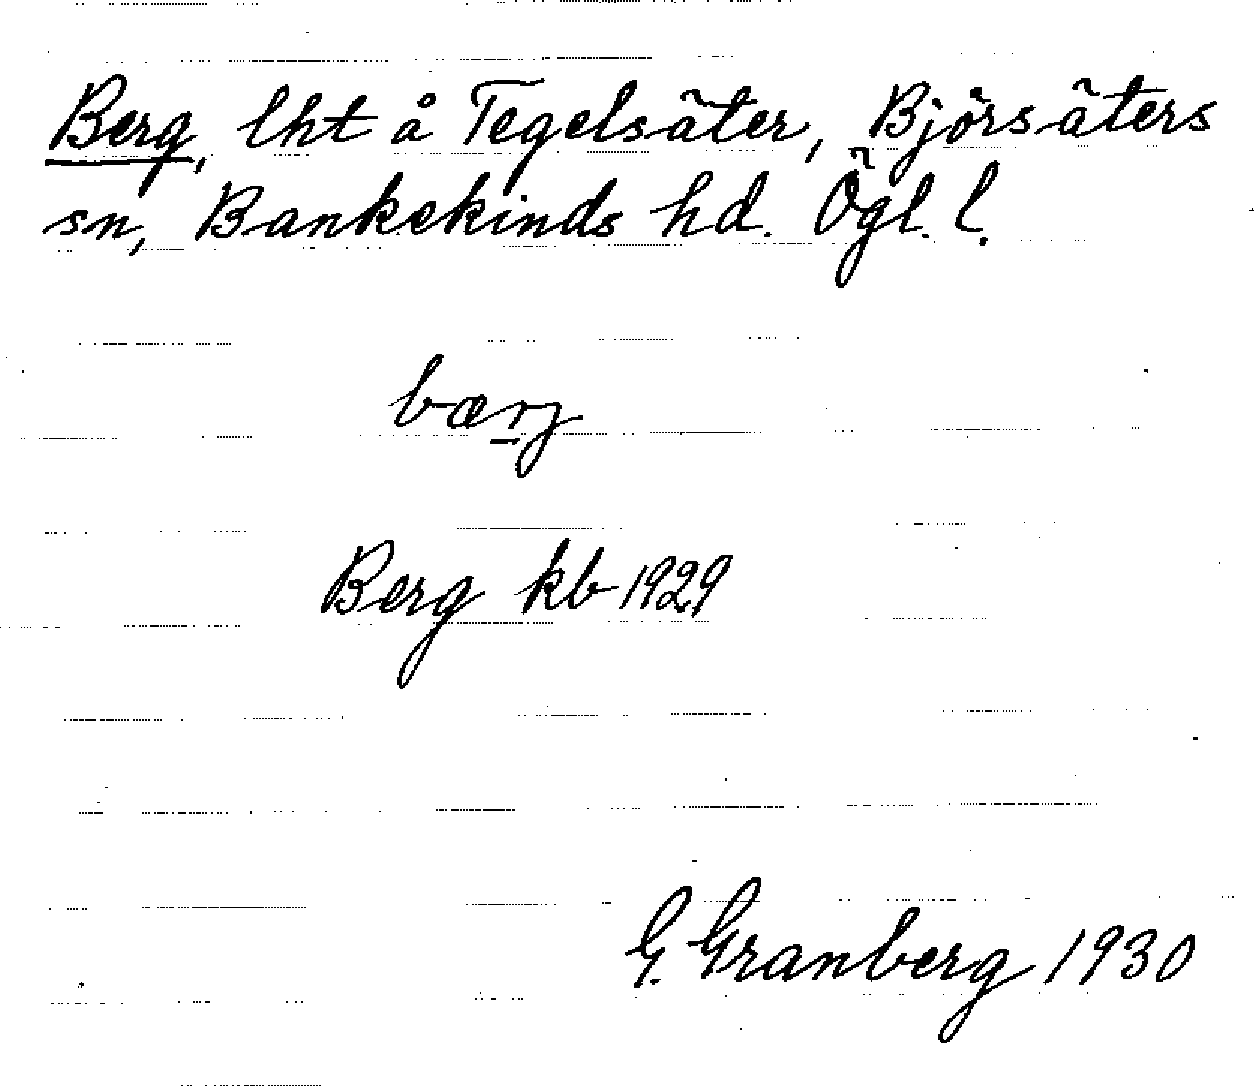 Berg, lht å Tegelsäter, Björsäters
sn, Bankekinds hd. Ögl. l.
bærj
Berg kb 1929
G. Granberg 1930